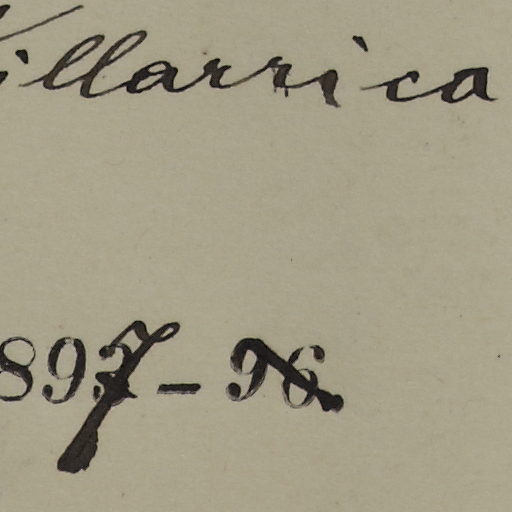 Villarrica
1897-96.